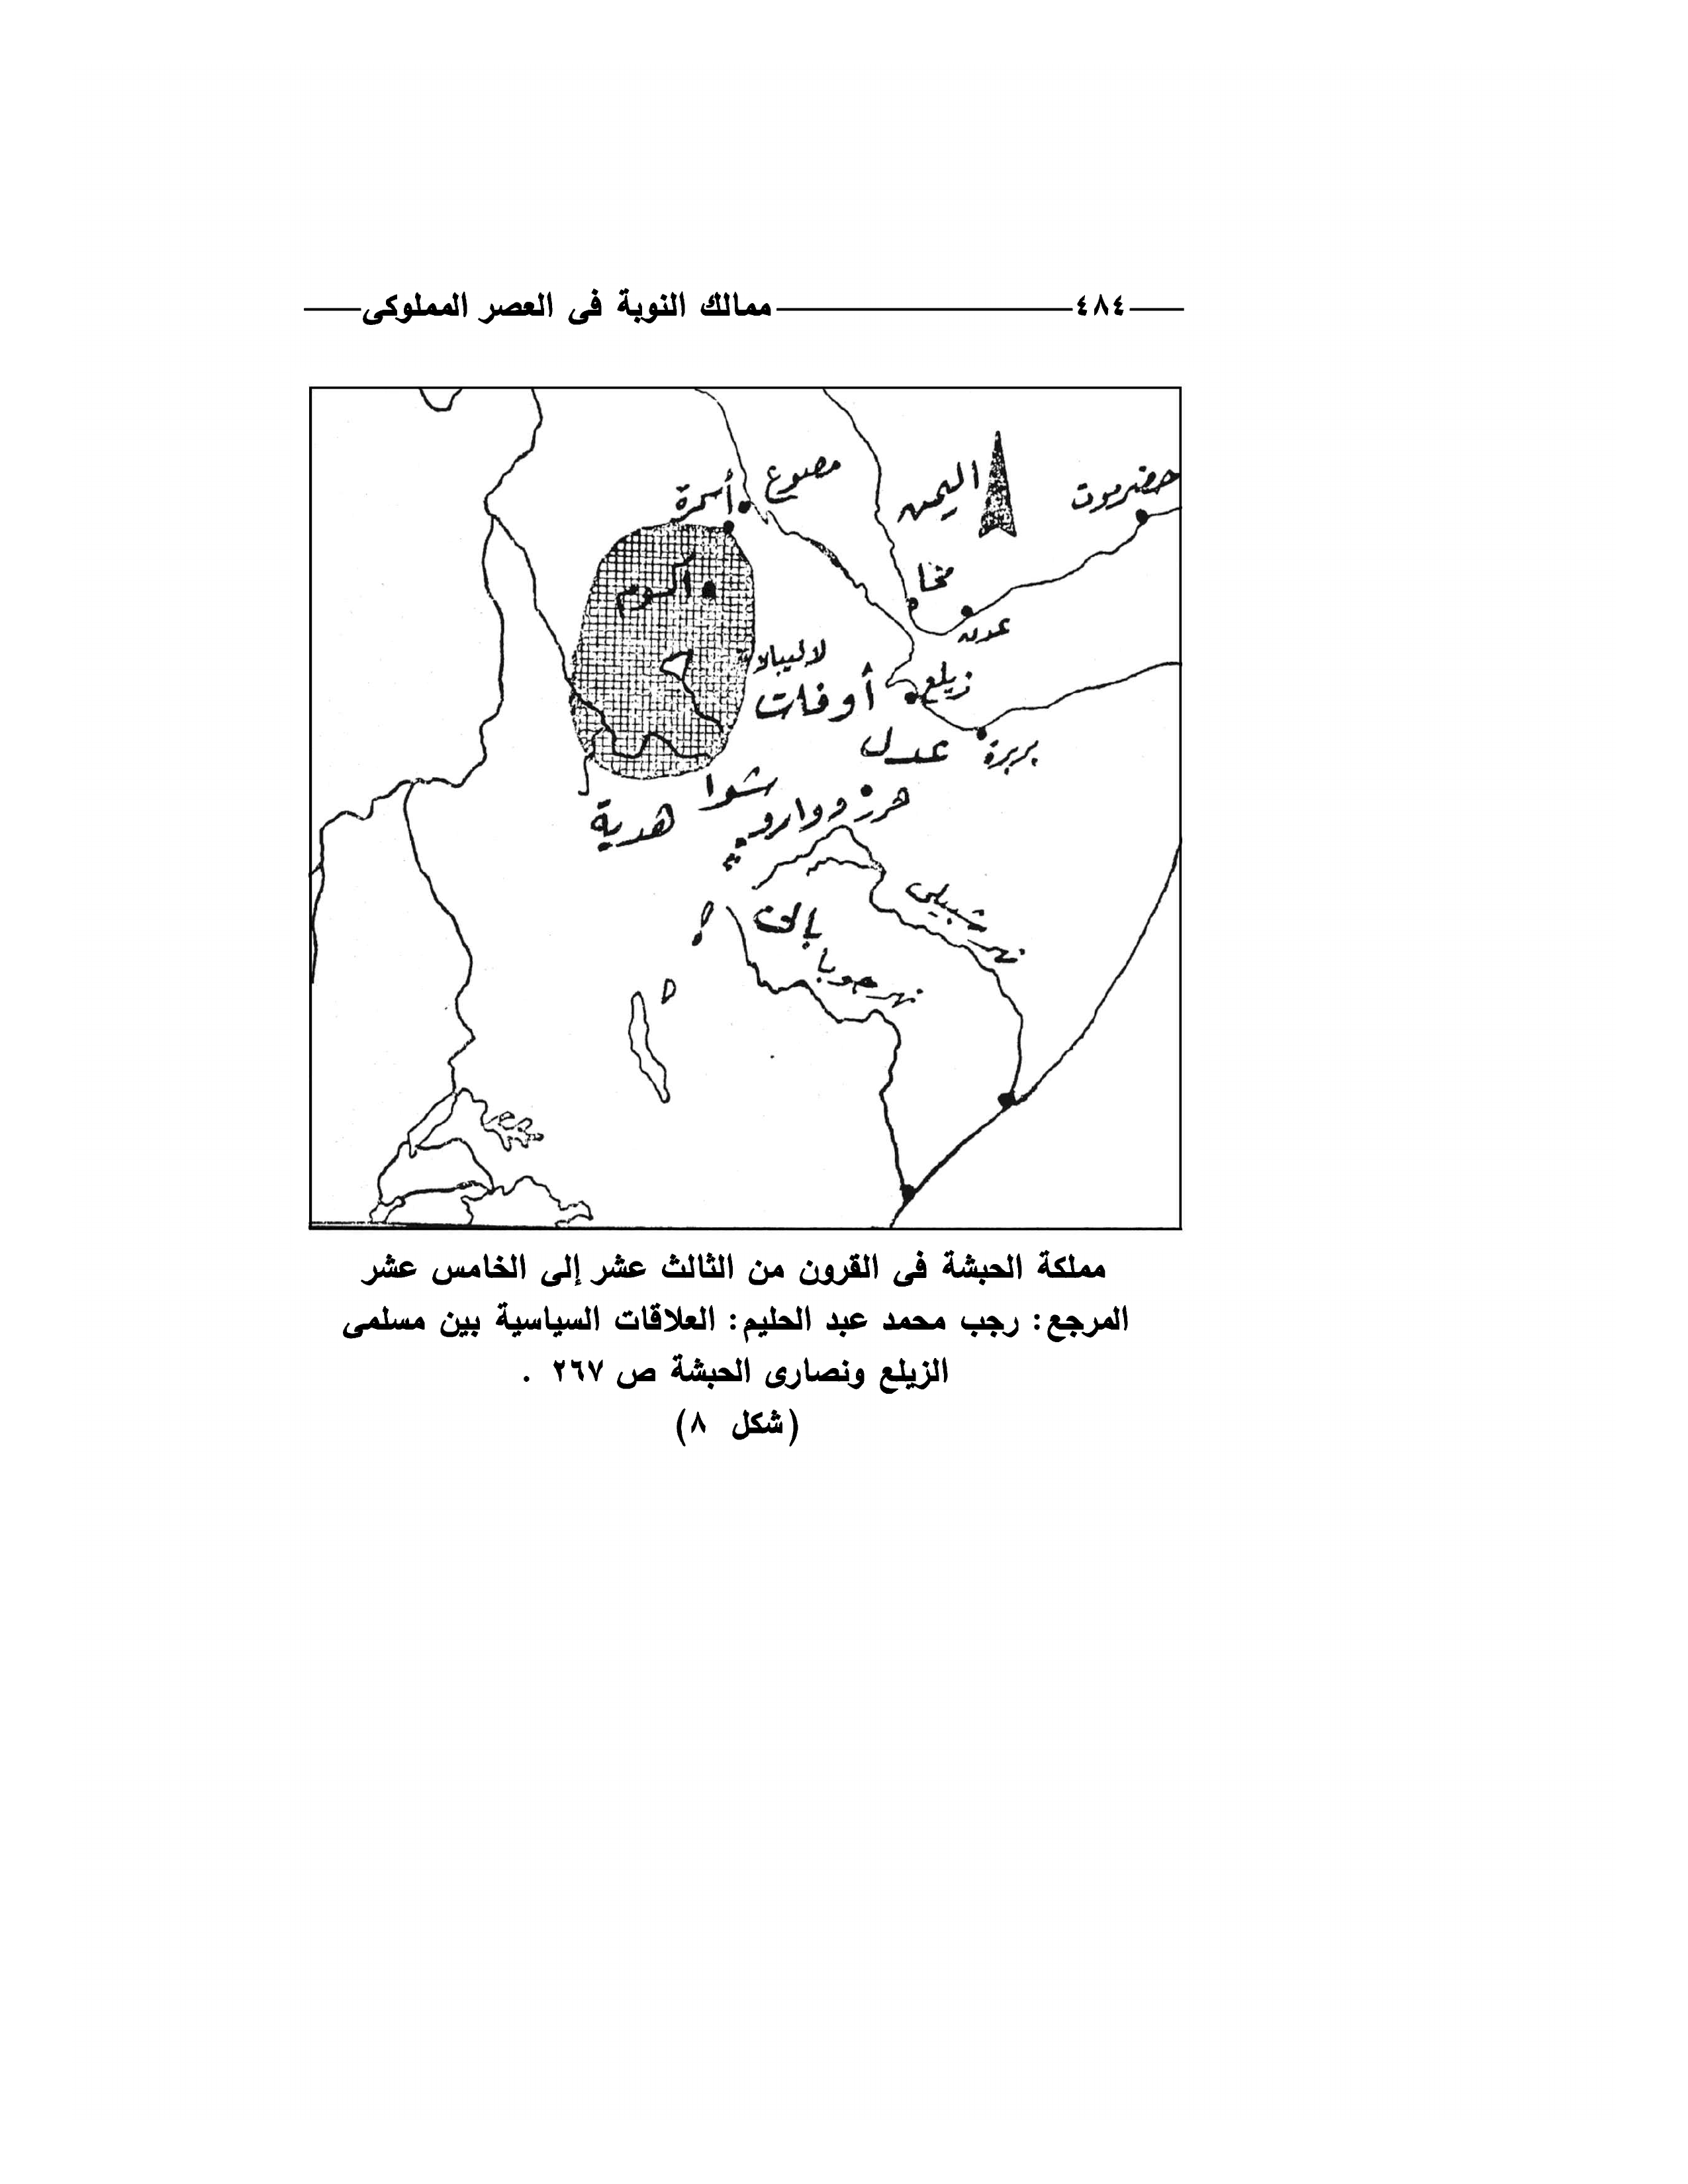 ٤٨٤ ممالك النوبة فى العصر المملوكى
مصوع
أسمرة
اليمن
حضرموت
أكسوم
مخا
عدن
لاليبلا
زيلع
أوفات
عدل
بربرة
شوا
هرر
هدية
نهر شبيلى
بالى
نهر جوبا
مملكة الحبشة فى القرون من الثالث عشر إلى الخامس عشر
المرجع: رجب محمد عبد الحليم: العلاقات السياسية بين مسلمى
الزيلع ونصارى الحبشة ص ٢٦٧ .
(شكل ٨)